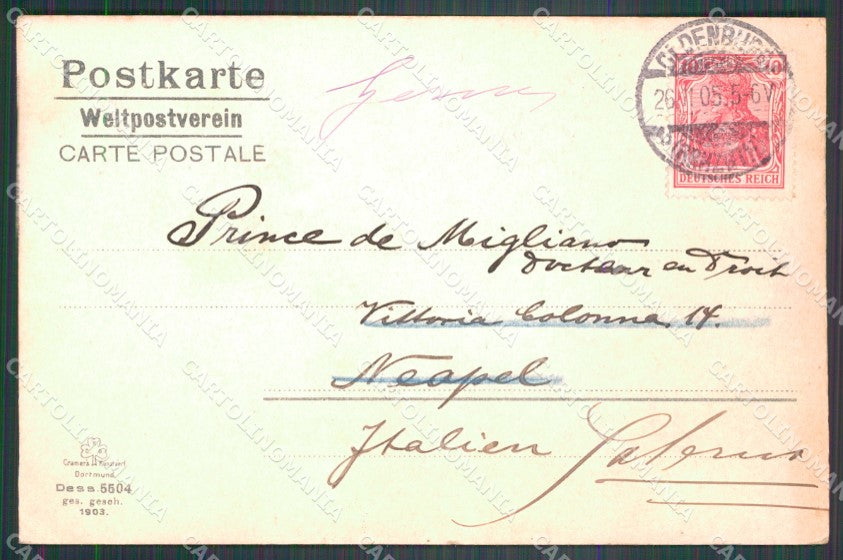 Postkarte
Weltpostverein
CARTE POSTALE
OLDENBURG
26 VI 05. 5-6V
10 10
DEUTSCHES REICH
Prince de Migliano
Docteur en Droit
Vittoria Colonna 14.
Neapel
Italien Salerno
Cramers Kunstanst.
Dortmund.
Dess. 5504
ges. gesch.
1903.
CARTOLINOMANIA